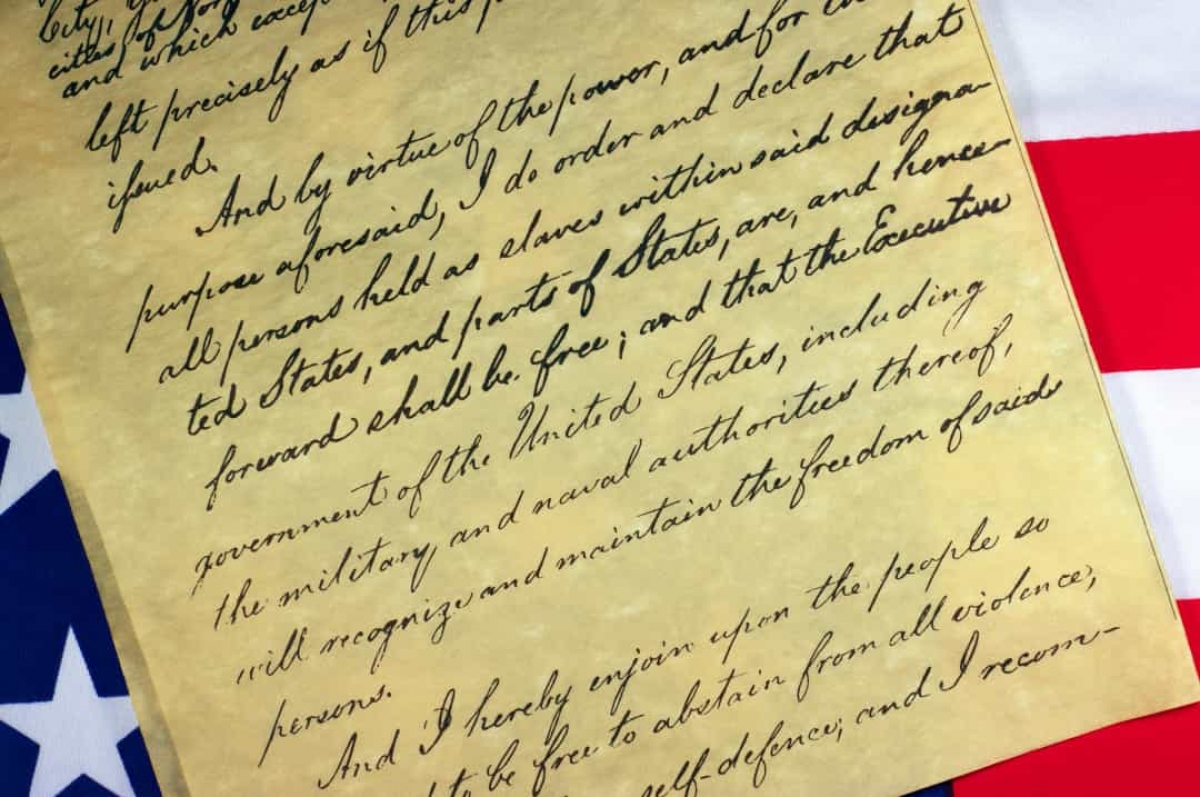 City,
cities of
and which
left precisely as if this
issued.
And by virtue of the power, and for
purpose aforesaid, I do order and declare that
all persons held as slaves within said designa-
ted States, and parts of States, are, and hence-
forward shall be free; and that the Executive
government of the United States, including
the military and naval authorities thereof,
will recognize and maintain the freedom of said
persons.
And I hereby enjoin upon the people so
to be free to abstain from all violence,
self-defence; and I recom-